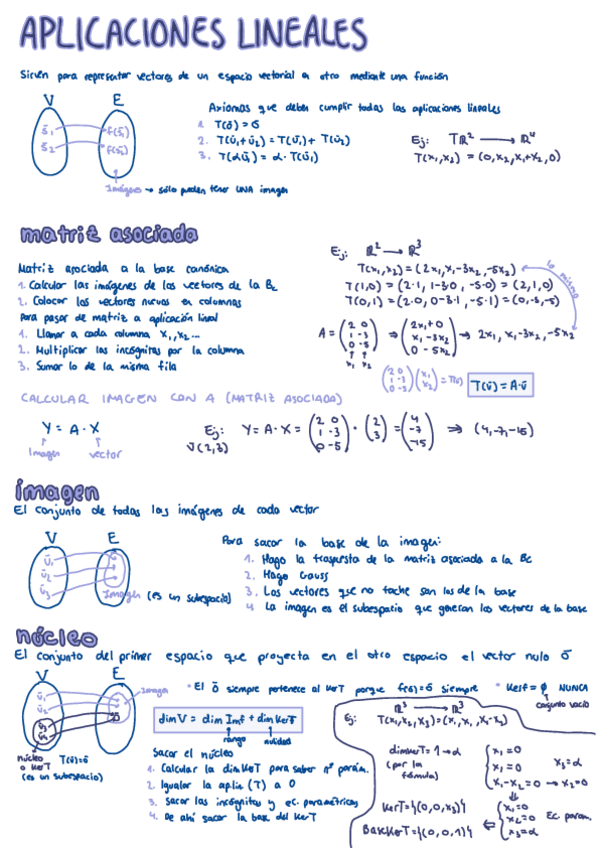 APLICACIONES LINEALES
Sirven para representar vectores de un espacio vectorial a otro mediante una función
V E
Axiomas que deben cumplir todas las aplicaciones lineales
1. T(ō) = ō
2. T(ū₁+ū₂) = T(ū₁) + T(ū₂)
3. T(αū₁) = α · T(ū₁)
Ej: Tℝ² → ℝ⁴
T(x₁,x₂) = (0,x₂,x₁+x₂,0)
f(ū₁)
f(ū₂)
Imágenes → sólo pueden tener UNA imagen
matriz asociada
Matriz asociada a la base canónica
1. Calcular las imágenes de los vectores de la Bc
2. Colocar los vectores nuevos en columnas
Para pasar de matriz a aplicación lineal
1. Llamar a cada columna x₁, x₂...
2. Multiplicar las incógnitas por la columna
3. Sumar lo de la misma fila
Ej: ℝ² → ℝ³
T(x₁,x₂) = (2x₁,x₁-3x₂,-5x₂)
T(1,0) = (2·1, 1-3·0, -5·0) = (2,1,0)
T(0,1) = (2·0, 0-3·1, -5·1) = (0,-3,-5)
lo mismo
A = (2 0 / 1 -3 / 0 -5) ⇒ (2x₁+0 / x₁-3x₂ / 0-5x₂) → 2x₁, x₁-3x₂, -5x₂
x₁ x₂
(2 0 / 1 -3 / 0 -5)(x₁ / x₂) = T(ū)
T(ū) = A·ū
CALCULAR IMAGEN CON A (MATRIZ ASOCIADA)
Y = A · X
Imagen vector
Ej: Y = A · X = (2 0 / 1 -3 / 0 -5) · (2 / 3) = (4 / -7 / -15) ⇒ (4,-7,-15)
V(2,3)
imagen
El conjunto de todas las imágenes de cada vector
V E
ū₁
ū₂
ū₃
Imagen (es un subespacio)
Para sacar la base de la imagen:
1. Hago la traspuesta de la matriz asociada a la Bc
2. Hago Gauss
3. Los vectores que no tache son los de la base
4. La imagen es el subespacio que generan los vectores de la base
núcleo
El conjunto del primer espacio que proyecta en el otro espacio el vector nulo ō
V E
Imagen
núcleo
o KerT T(ū)=ō
(es un subespacio)
* El ō siempre pertenece al KerT porque f(ō)=ō siempre
* Kerf = ∅ NUNCA
conjunto vacío
dim V = dim Imf + dim KerT
rango nulidad
Sacar el núcleo
1. Calcular la dim KerT para saber nº parám.
2. Igualar la aplic (T) a 0
3. Sacar las incógnitas y ec. paramétricas
4. De ahí sacar la base del KerT
Ej: ℝ³ → ℝ³
T(x₁,x₂,x₃) = (x₁,x₁,x₁-x₂)
dim KerT = 1 → α
(por la fórmula)
x₁ = 0
x₁ = 0
x₁-x₂ = 0 → x₂=0
x₃=α
x₁=0
x₂=0
x₃=α
Ec. param.
KerT = {(0,0,x₃)}
Base KerT = {(0,0,1)}